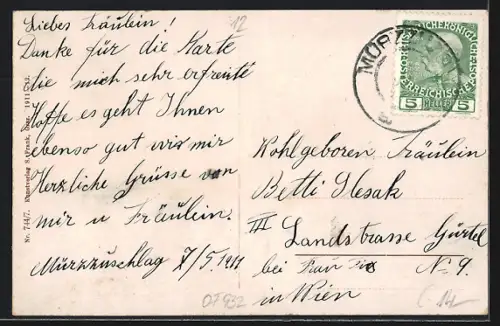 Liebes Fräulein!
Danke für die Karte
die mich sehr erfreute
Hoffe es geht Ihnen
ebenso gut wie mir
Herzliche Grüsse von
mir u Fräulein.
Mürzzuschlag 7/5 1911
Nr. 744/7. Kunstverlag Frank, Graz. 1911
12
MÜRZZ
5 HELLER 5
Wohlgeboren Fräulein
Betti Slesak
III Landstrasse Gürtel
bei Frau No 9.
in Wien
07932